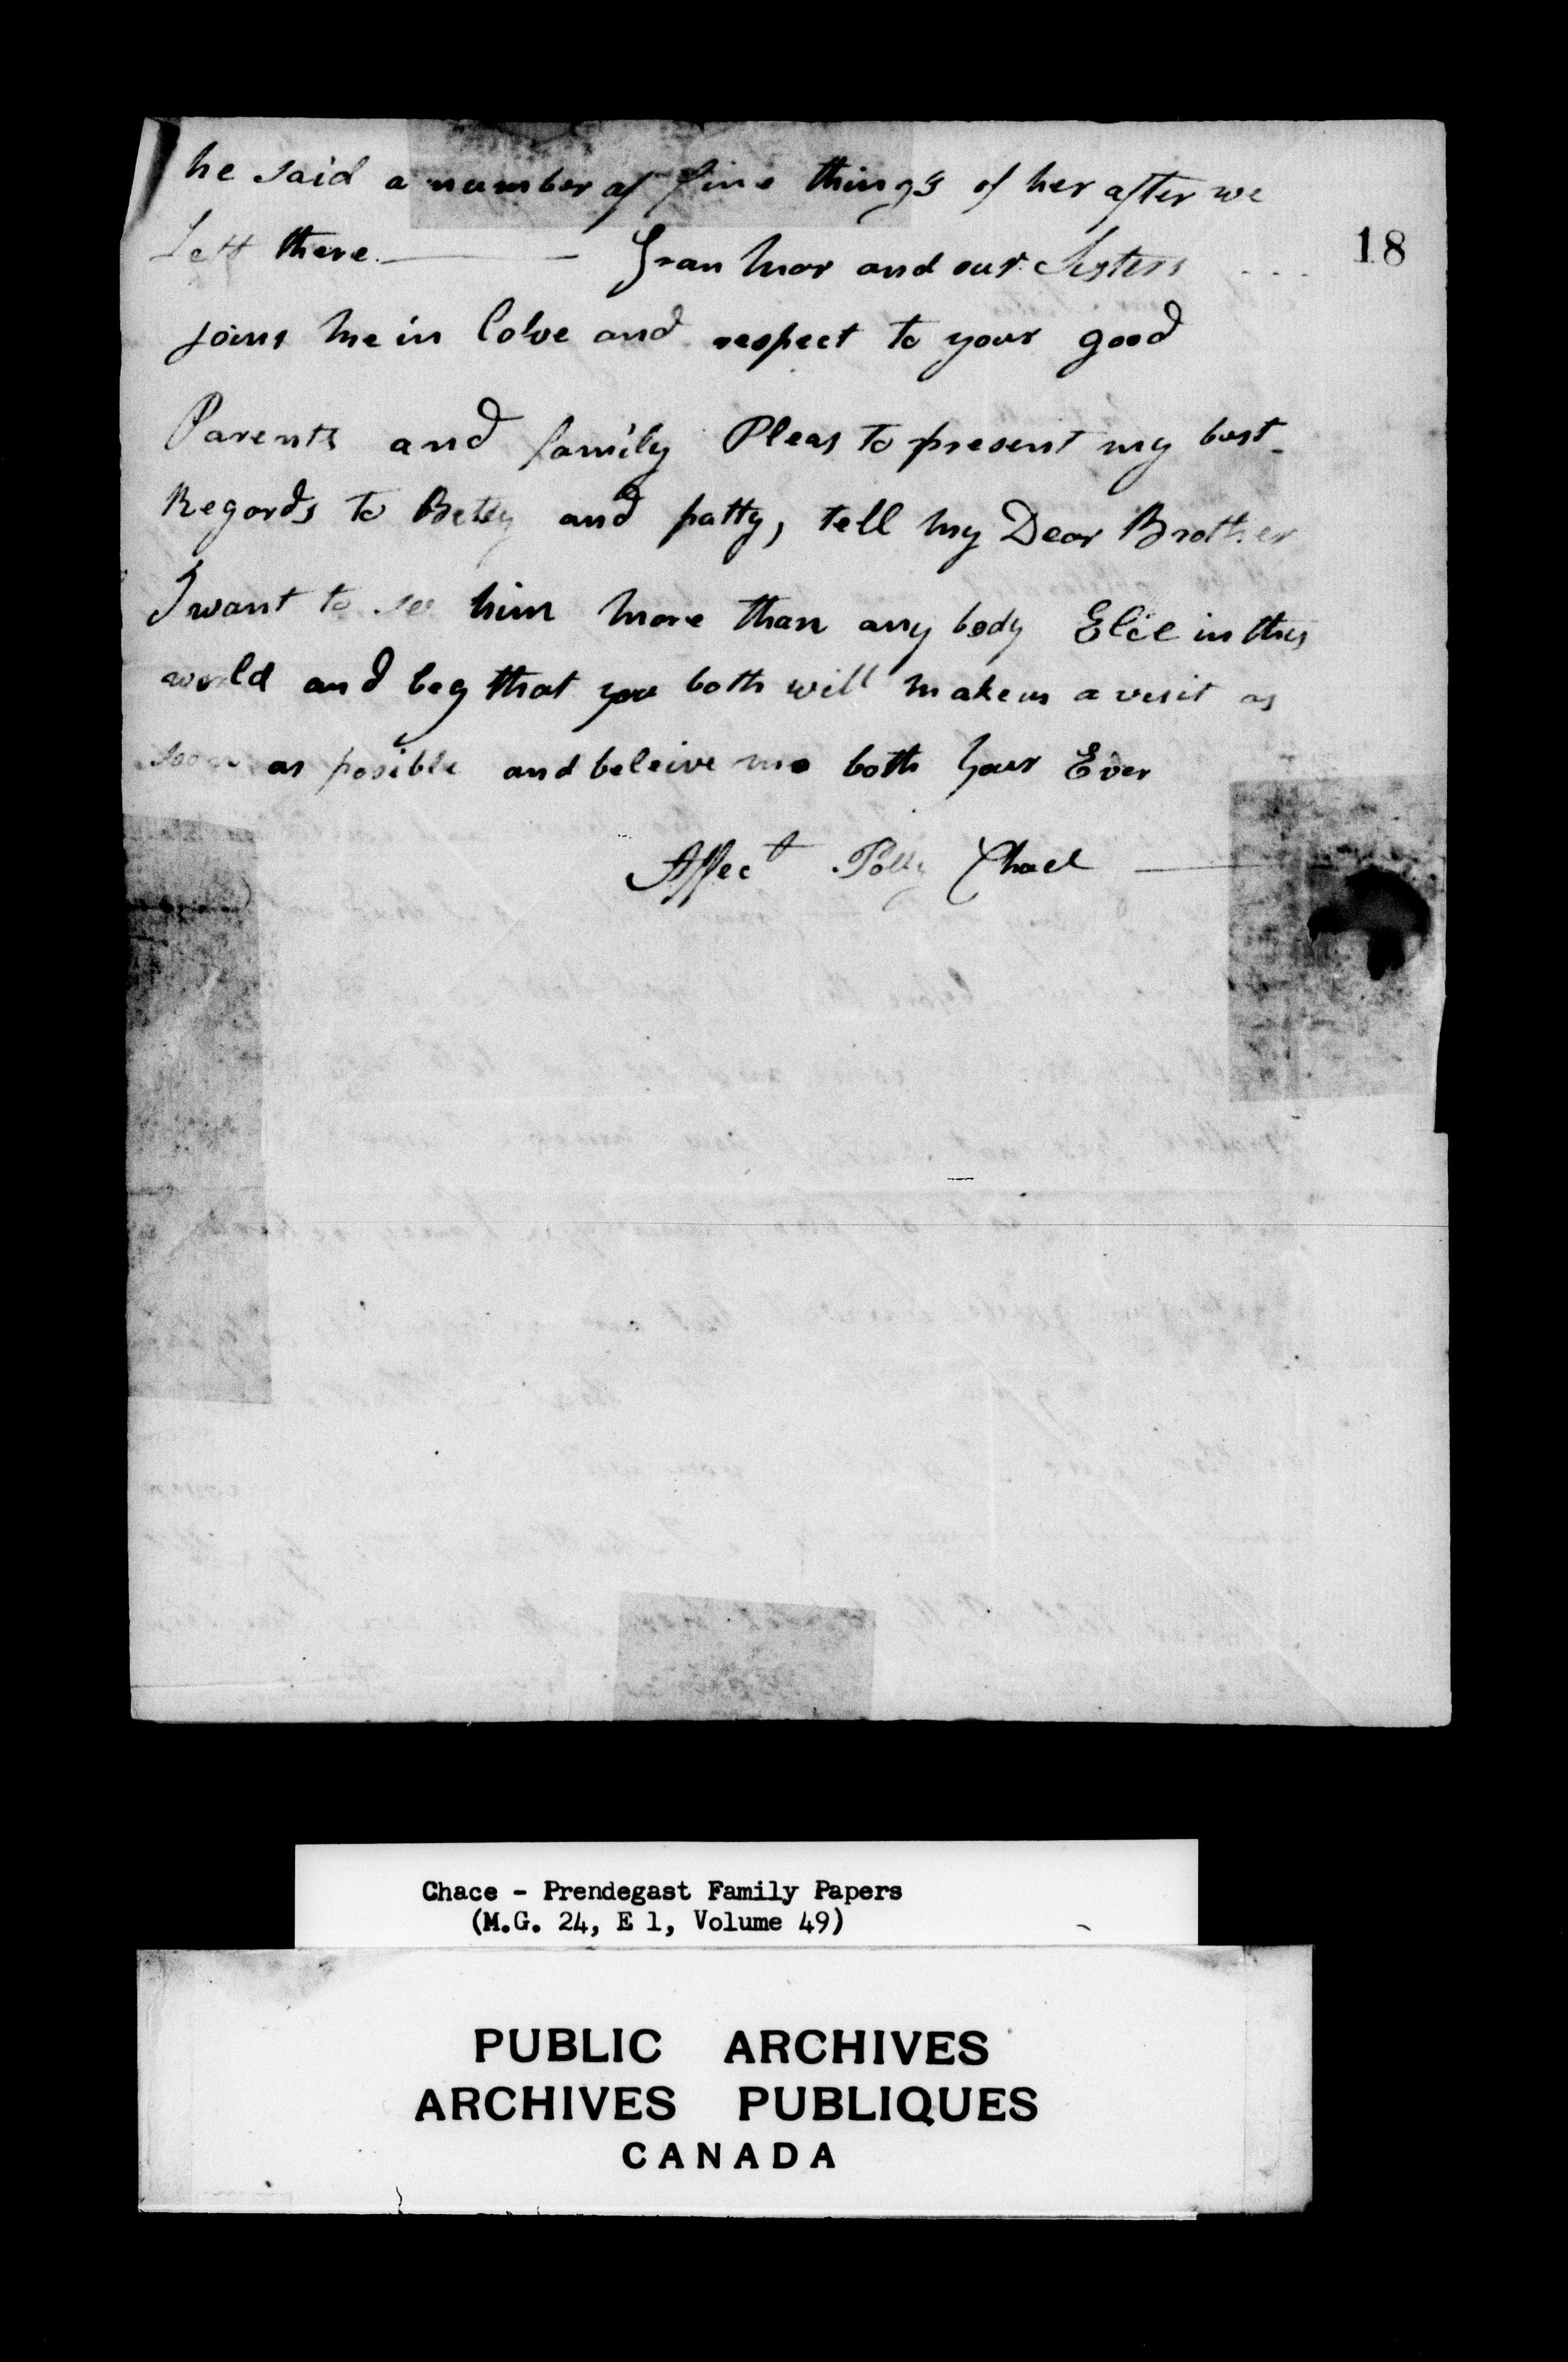 he said a number of fine things of her after we
Left there. — Gran mar and our Sisters
18
joins me in love and respect to your good
Parents and family Pleas to present my best
Regards to Betsy and patty, tell my Dear Brother
I want to see him more than any body Elce in this
world and beg that you both will make us a visit as
soon as posible and beleive me both your Ever
Affect Polly Chace
Chace - Prendegast Family Papers
(M.G. 24, E 1, Volume 49)
PUBLIC ARCHIVES
ARCHIVES PUBLIQUES
CANADA